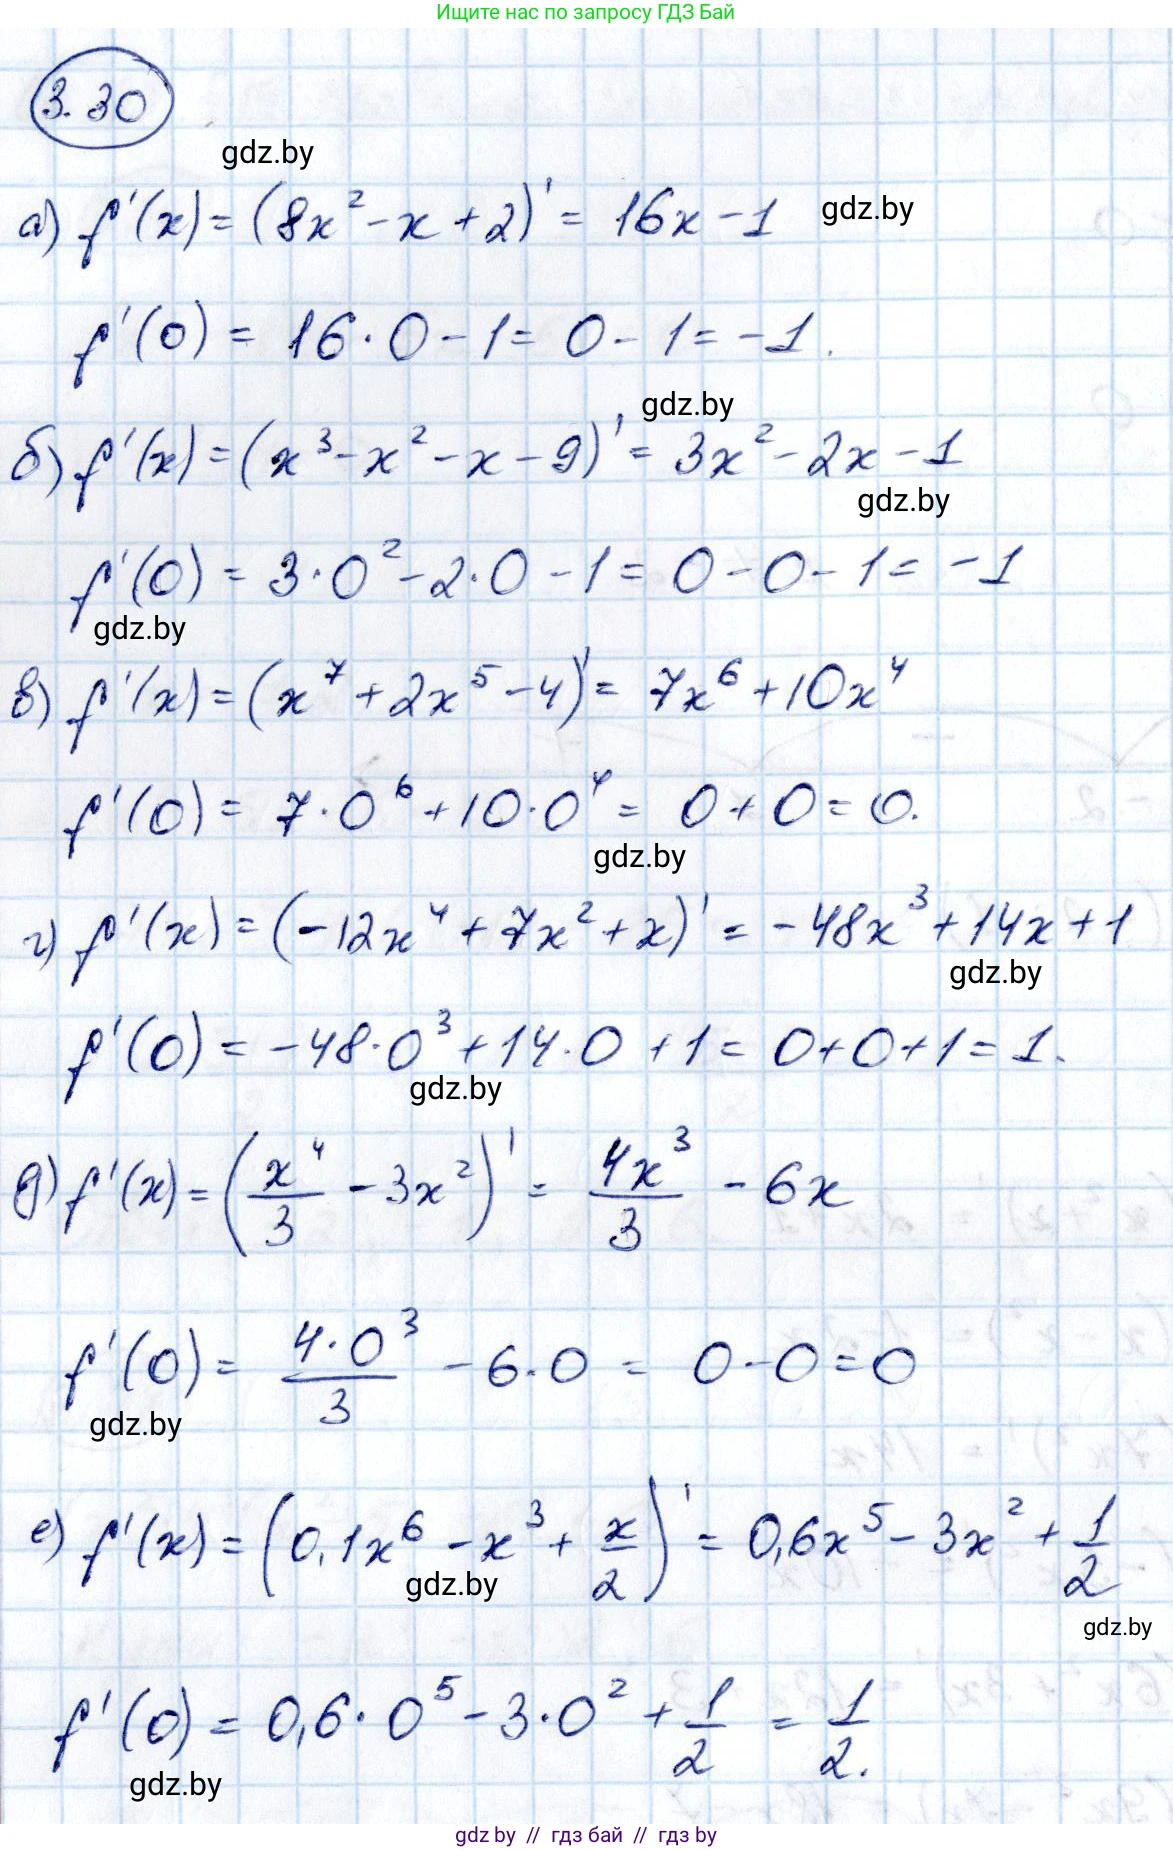 Ищите нас по запросу ГДЗ Бай
3.30
gdz.by
а) f'(x) = (8x² - x + 2)' = 16x - 1 gdz.by
f'(0) = 16·0 - 1 = 0 - 1 = -1.
gdz.by
б) f'(x) = (x³ - x² - x - 9)' = 3x² - 2x - 1
gdz.by
f'(0) = 3·0² - 2·0 - 1 = 0 - 0 - 1 = -1
gdz.by
в) f'(x) = (x⁷ + 2x⁵ - 4)' = 7x⁶ + 10x⁴
f'(0) = 7·0⁶ + 10·0⁴ = 0 + 0 = 0.
gdz.by
г) f'(x) = (-12x⁴ + 7x² + x)' = -48x³ + 14x + 1
gdz.by
f'(0) = -48·0³ + 14·0 + 1 = 0 + 0 + 1 = 1.
gdz.by
д) f'(x) = (x⁴/3 - 3x²)' = 4x³/3 - 6x
f'(0) = 4·0³/3 - 6·0 = 0 - 0 = 0
gdz.by
е) f'(x) = (0,1x⁶ - x³ + x/2)' = 0,6x⁵ - 3x² + 1/2
gdz.by
gdz.by
f'(0) = 0,6·0⁵ - 3·0² + 1/2 = 1/2.
gdz.by
gdz by // гдз бай // гдз by